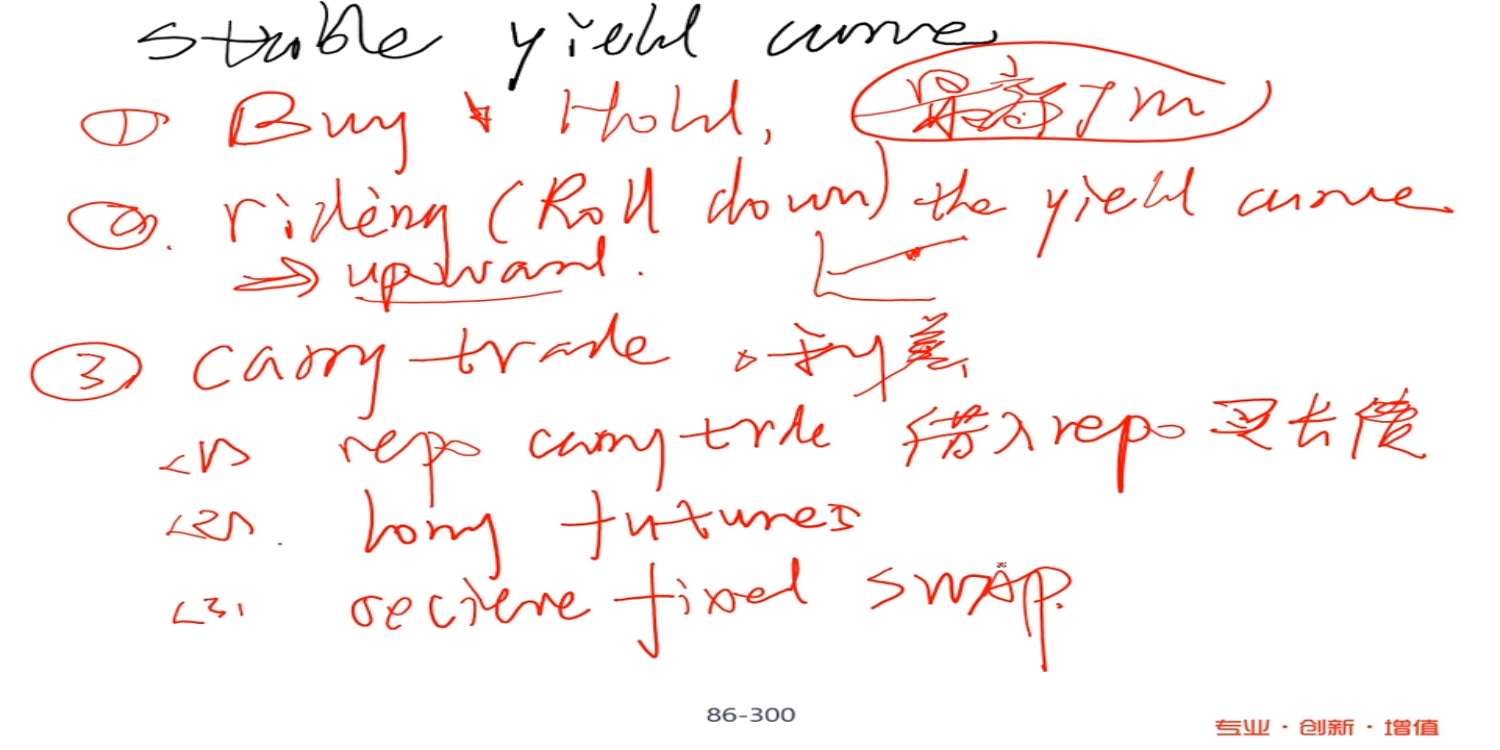 stable yield curve
① Buy & Hold, 最高 YTM
②. riding (Roll down) the yield curve
⇒ upward.
③ carry trade . 利差,
<1> repo carry trde 借入repo 买长债
<2>. long futures
<3> recieve fixed SWAP.
86-300
专业·创新·增值